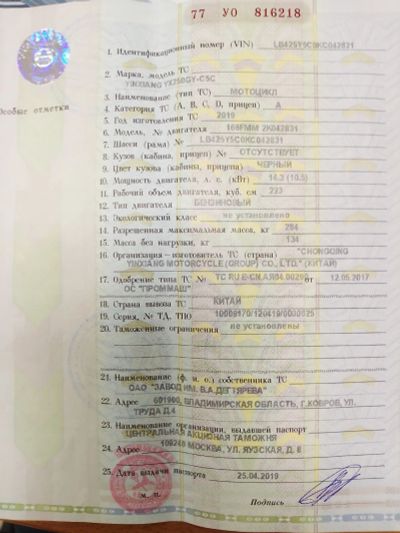 77 УО 816218
1. Идентификационный номер (VIN) LB425Y5C0KC042831
2. Марка, модель ТС
YINXIANG YX250GY-C5C
3. Наименование (тип ТС) МОТОЦИКЛ
4. Категория ТС (А, В, С, D, прицеп) А
Особые отметки
5. Год изготовления ТС 2019
6. Модель, № двигателя 166FMM 2K042831
7. Шасси (рама) № LB425Y5C0KC042831
8. Кузов (кабина, прицеп) № ОТСУТСТВУЕТ
9. Цвет кузова (кабины, прицепа) ЧЕРНЫЙ
10. Мощность двигателя, л. с. (кВт) 14.3 (10.5)
11. Рабочий объем двигателя, куб. см 223
12. Тип двигателя БЕНЗИНОВЫЙ
13. Экологический класс не установлено
14. Разрешенная максимальная масса, кг 284
15. Масса без нагрузки, кг 134
16. Организация – изготовитель ТС (страна) "CHONGQING
YINXIANG MOTORCYCLE (GROUP) CO., LTD." (КИТАЙ)
17. Одобрение типа ТС № ТС RU E-CN.АЯ04.00292 от 12.05.2017
ОС "ПРОММАШ"
18. Страна вывоза ТС КИТАЙ
19. Серия, № ТД, ТПО 10009170/120419/0000025
20. Таможенные ограничения не установлены
21. Наименование (ф. и. о.) собственника ТС
ОАО "ЗАВОД ИМ. В.А.ДЕГТЯРЕВА"
22. Адрес 601900, ВЛАДИМИРСКАЯ ОБЛАСТЬ, Г.КОВРОВ, УЛ.
ТРУДА Д.4
23. Наименование организации, выдавшей паспорт
ЦЕНТРАЛЬНАЯ АКЦИЗНАЯ ТАМОЖНЯ
24. Адрес 109240 МОСКВА, УЛ. ЯУЗСКАЯ, Д. 8
25. Дата выдачи паспорта 25.04.2019
М. П.
Подпись